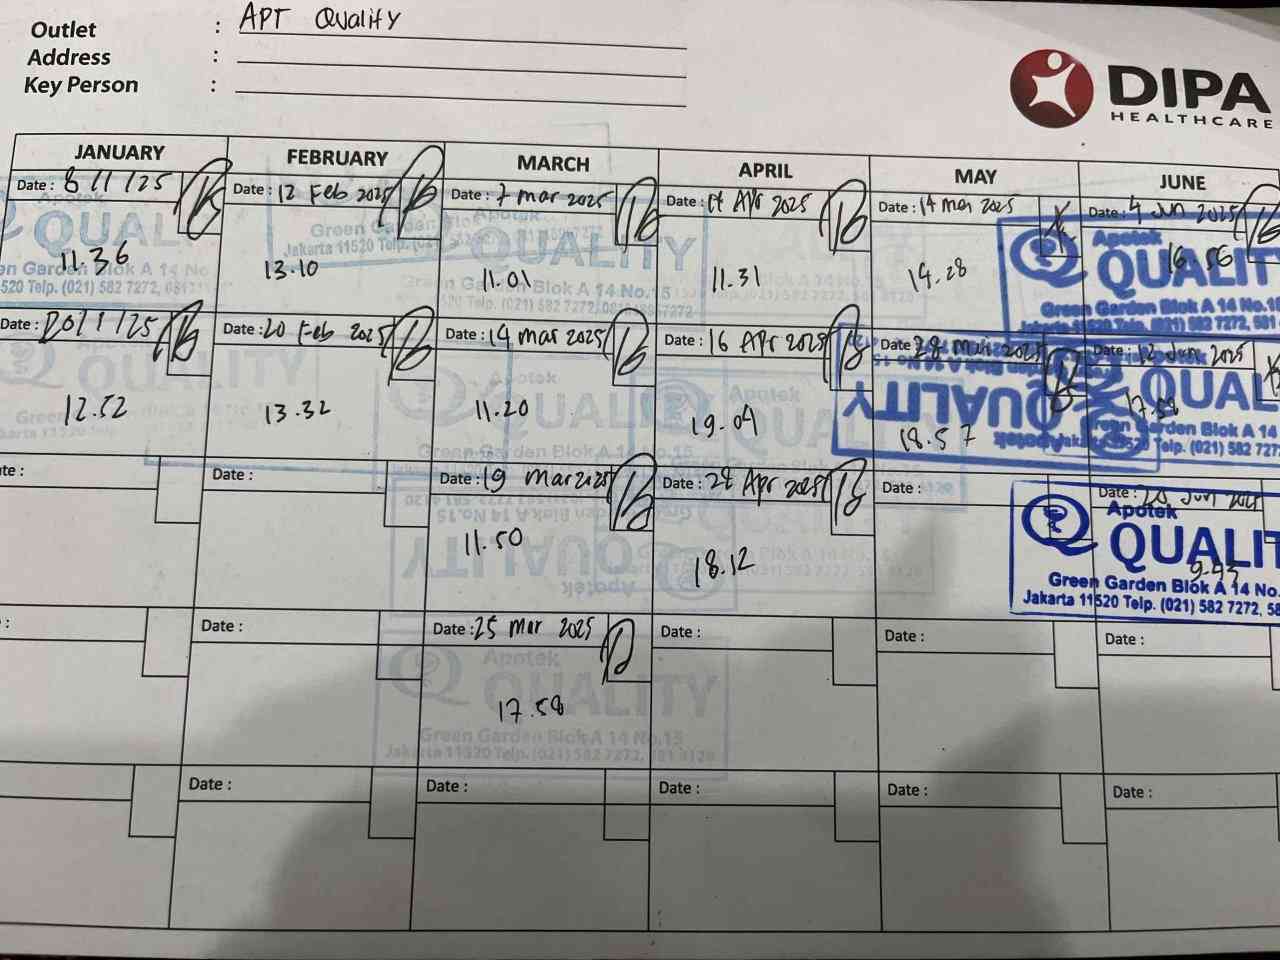 Outlet : APT Quality
Address :
Key Person :
DIPA
HEALTHCARE
JANUARY FEBRUARY MARCH APRIL MAY JUNE
Date : 8/1/25 Date : 12 Feb 2025 Date : 7 mar 2025 Date : Apr 2025 Date : 14 2025 Date : 4 Jun 2025
11.36 13.10 11.01 11.31 14.28 16.56
Apotek
QUALITY
Green Garden Blok A 14 No.15
Jakarta 11520 Telp. (021) 582 7272, 581
Date : 20/1/25 Date : 20 Feb 2025 Date : 14 mar 2025 Date : 16 Apr 2025 Date : 28 2025 Date : 12 Jun 2025
12.22 13.32 11.20 19.04 18.57 17.58
Apotek
QUALITY
Date : Date : 19 Mar 2025 Date : 28 Apr 2025 Date : Date : Jun 2025
11.50 18.12
Apotek
QUALITY
Green Garden Blok A 14 No.
Jakarta 11520 Telp. (021) 582 7272, 58
Date : Date : 25 Mar 2025 Date : Date : Date :
17.58
Apotek
QUALITY
Green Garden Blok A 14 No.15
Jakarta 11520 Telp. (021) 582 7272, 581 4120
Date : Date : Date : Date : Date :